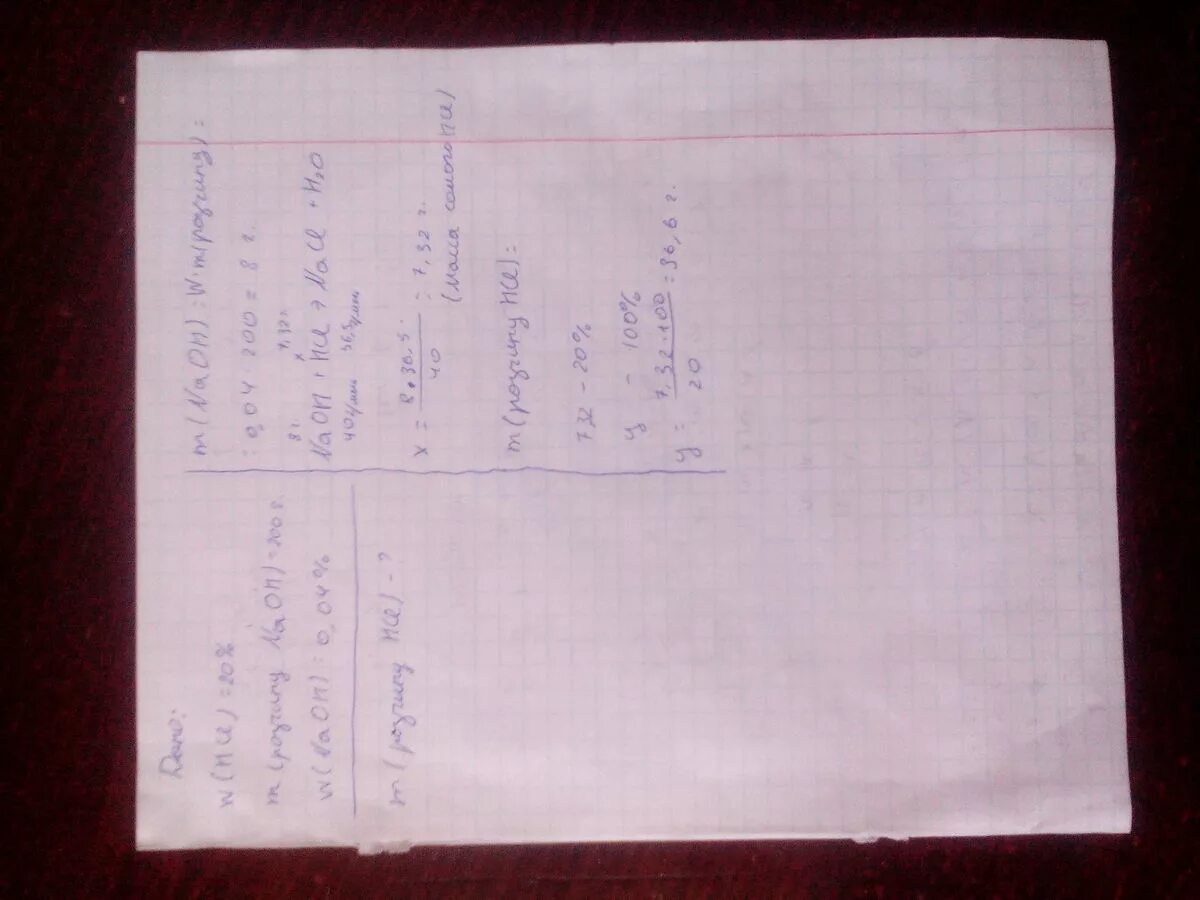 Дано:
W(HCl) = 20%
m(розчину NaOH) = 200 г.
W(NaOH) = 0,04%
m(розчину HCl) - ?
m(NaOH) = W·m(розчину) =
= 0,04 · 200 = 8 г.
8 г x 7,32 г
NaOH + HCl → NaCl + H₂O
40 г/моль 36,5 г/моль
x = 8·36.5 / 40 = 7,32 г.
(Масса самого HCl)
m(розчину HCl):
7,32 - 20%
y - 100%
y = 7,32·100 / 20 = 36,6 г.